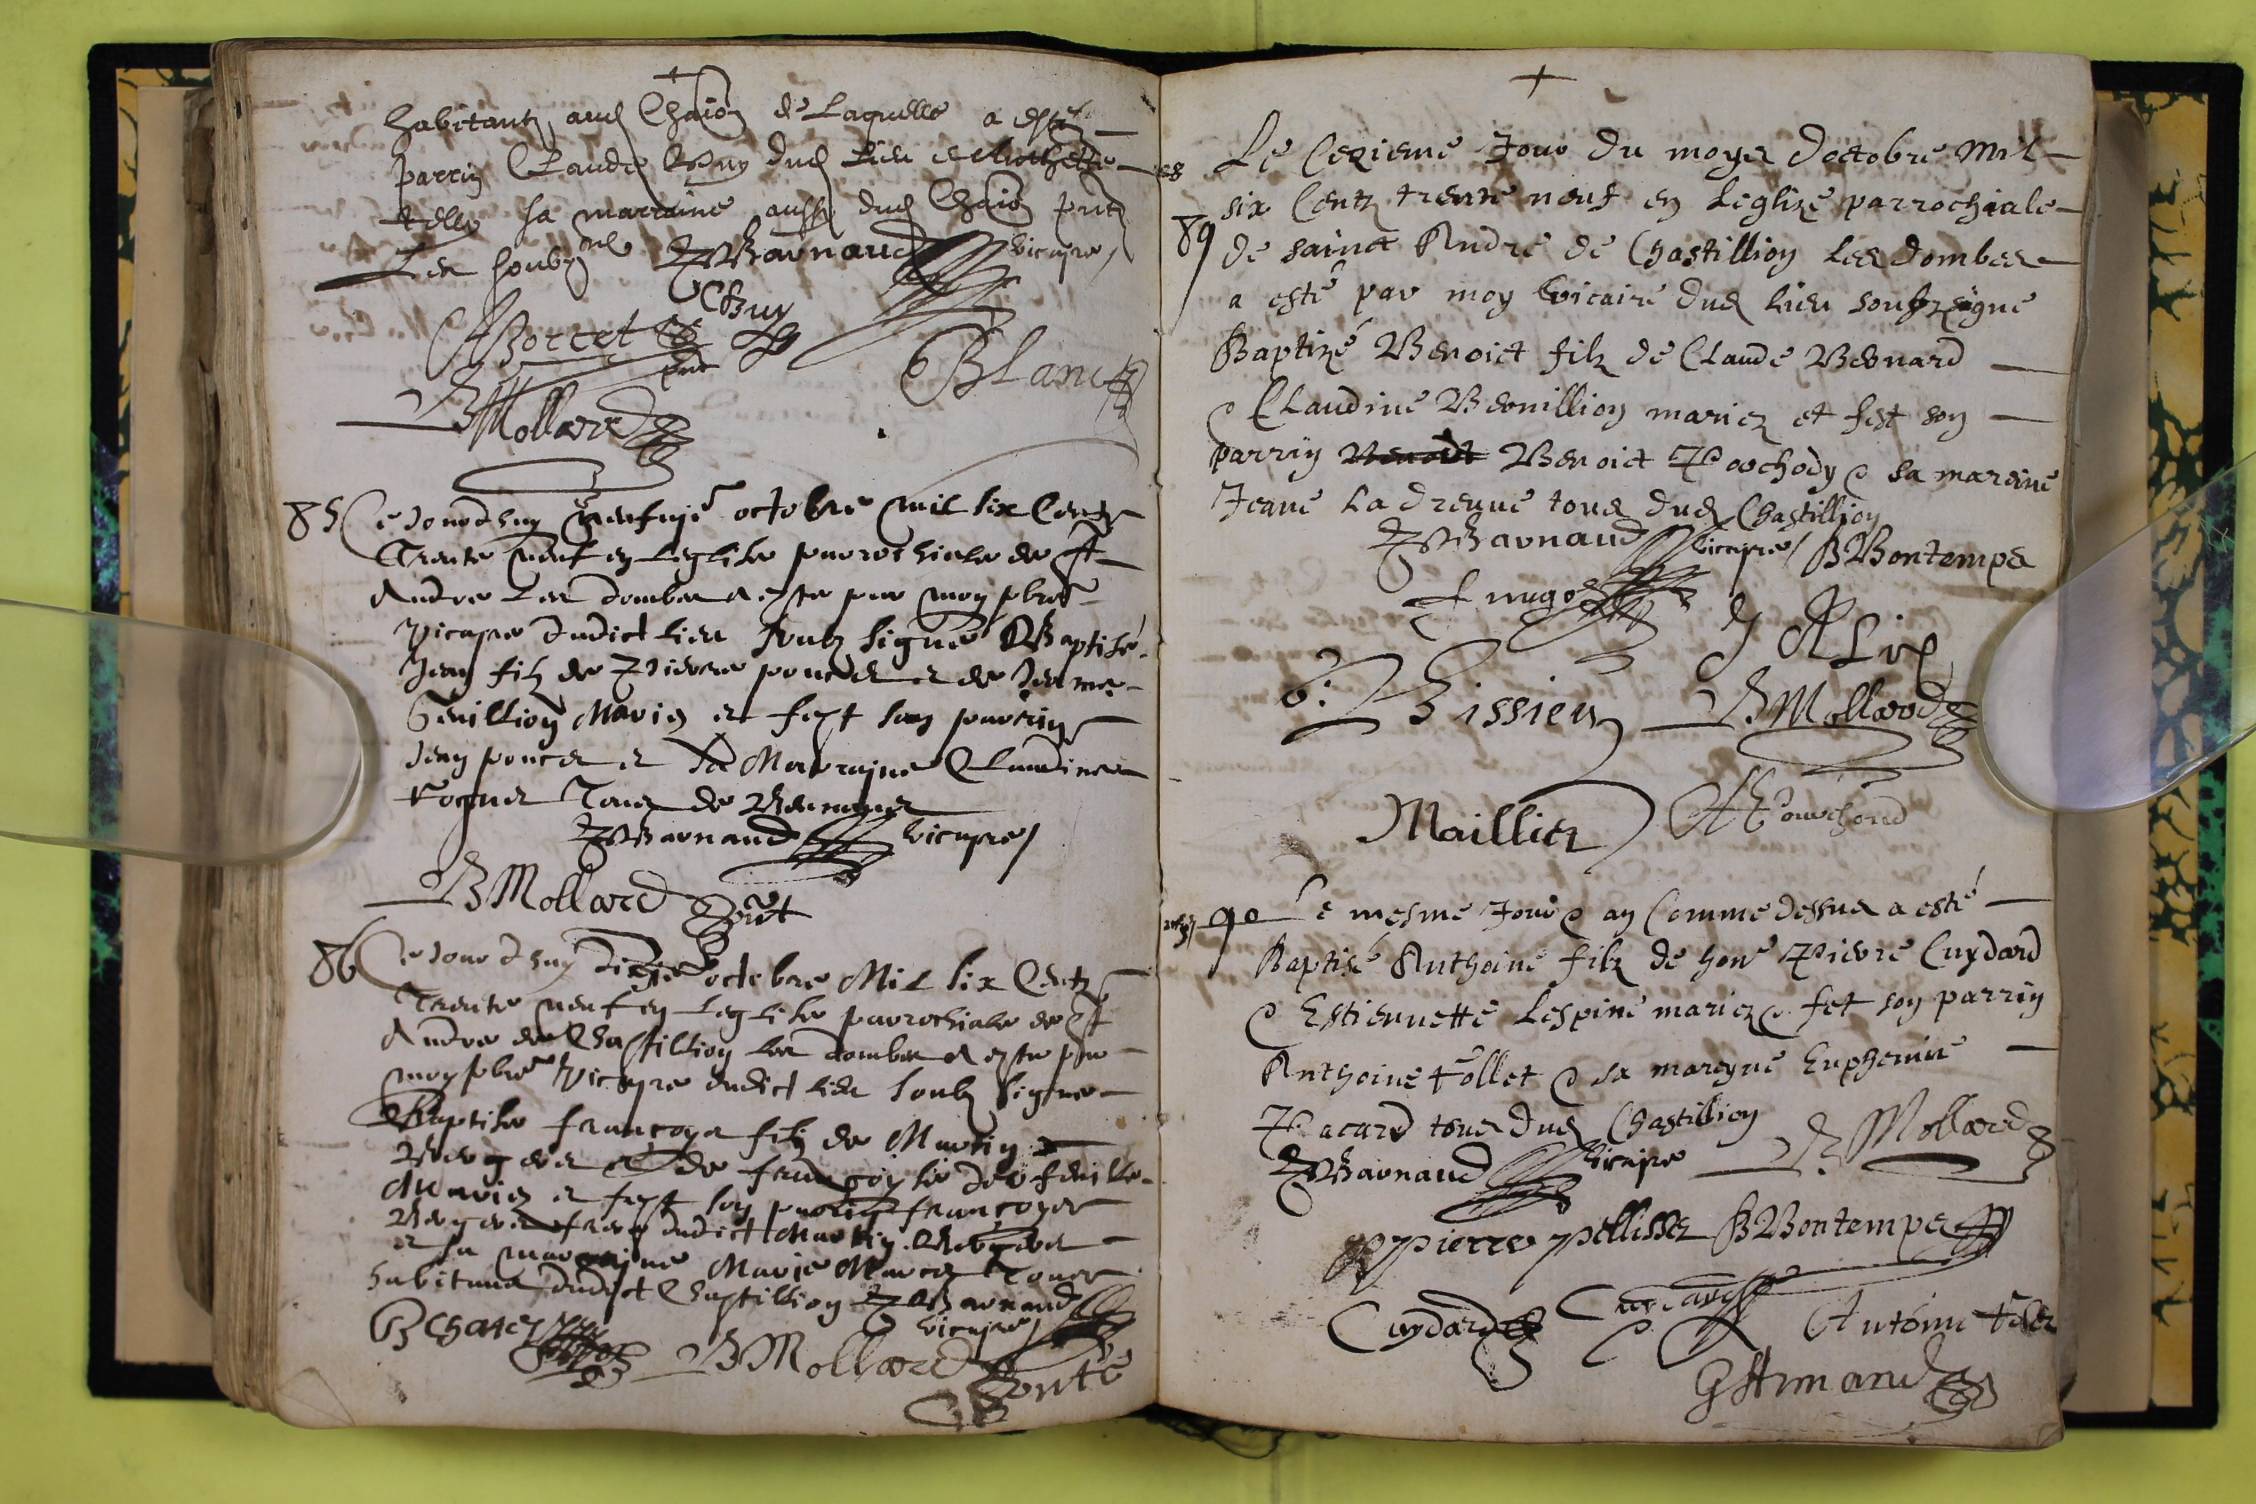 habitantz aud Chaion de Laquelle a esté
parrin Claude Buy dud lieu et
sa marraine aussy dud Chaion
Les soubz
Barnaud vicayre
CBuy
Borret
Blanc
BMollard
85 Ce Jourdhuy neufvie octobre mil six Centz
Trente neuf en leglise parrochiale de St
Andre Les dombes a este par moy pbre
vicayre dudict lieu soubz signé Baptisé
Jean filz de Pierre poncet et de Jeanne
Genillion Mariez et fest son parrin
Jean poncet et sa Marrayne Claudine
Tous de
Barnaud vicayre
BMollard
86 Ce Jourdhuy dixie octobre Mil six Centz
Trente neuf en leglise parrochiale de St
Andre de Chastillion les dombes a este par
moy pbre vicayre dudict lieu soubz signe
Baptise francoys filz de Martin
Berger et de francoyse
Mariez et fest son parrin francoys
Berger frere dudict Martin Berger
et sa marrayne Marie Tous
habitans dudict Chastillion Barnaud
vicayre
BMollard
89 Le Cezieme Jour du moys doctobre mil
six Centz trente neuf en Leglize parrochiale
de sainct Andre de Chastillion Les dombes
a esté par moy vicaire dud lieu soubzsigne
Baptizé Benoict filz de Claude Bernard
e Claudine Bernillion mariez et fest son
parrin Benoict Benoict Porchody e sa mareine
Jeane Ladreuue tous dud Chastillion
Barnaud vicayre BBontemps
J ALix
Bissieu BMollard
Maillier
90 Le mesme Jour e an Comme dessus a esté
Baptisé Anthoine filz de hone Pierre Cuydard
e Estiennette Lespine mariez e fet son parrin
Anthoine follet e sa mareyne Euphemie
Pacard tous dud Chastillion
Barnaud vicayre BMollard
Pierre Pellissez BBontemps
Cuydard Antoine